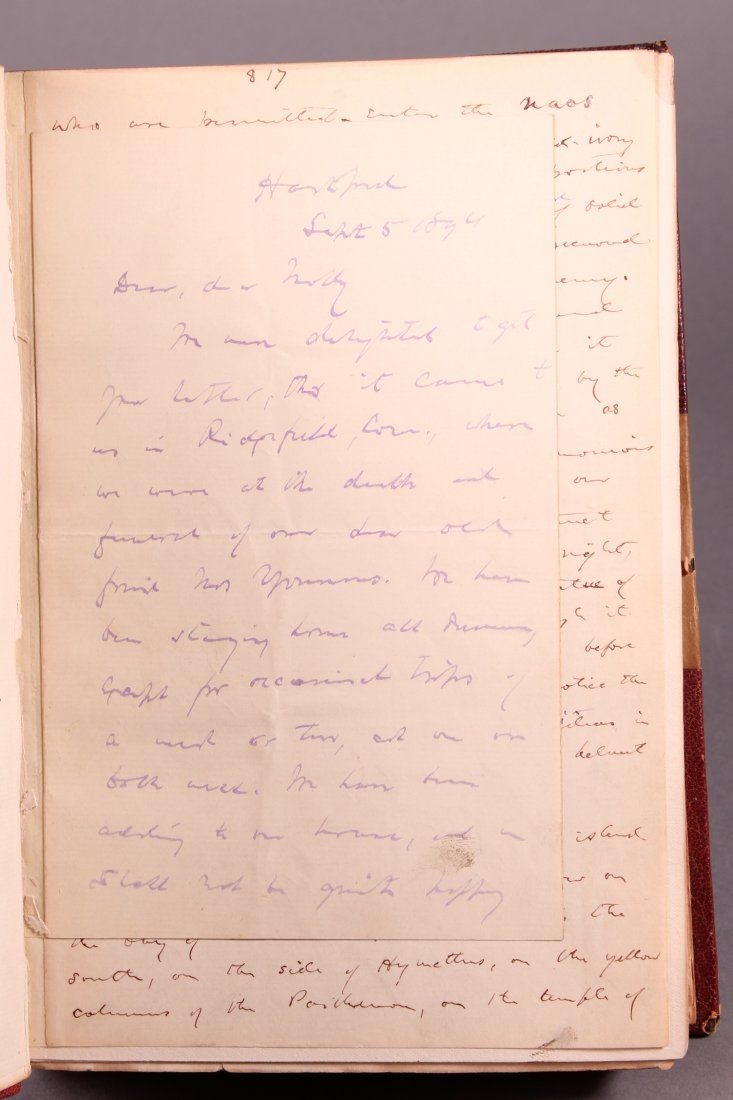 817
who are permitted enter the naos
Hartford
Sept 5 1894
Dear, dear Molly
We were delighted to get
your letter, tho it came to
us in Ridgefield, Conn., where
we were at the death and
funeral of our dear old
friend Mrs Youmans. We have
been staying home all Summer,
except for occasional trips of
a week or two, and we are
both well. We have been
adding to our house, and we
shall not be quite happy
ivory
of solid
removed
enemy.
and
it
by the
as
our
right,
statue of
it
before
notice the
in
helmet
island
on
the
the Bay of
South, on the side of Hymettus, on the yellow
columns of the Parthenon, on the temple of